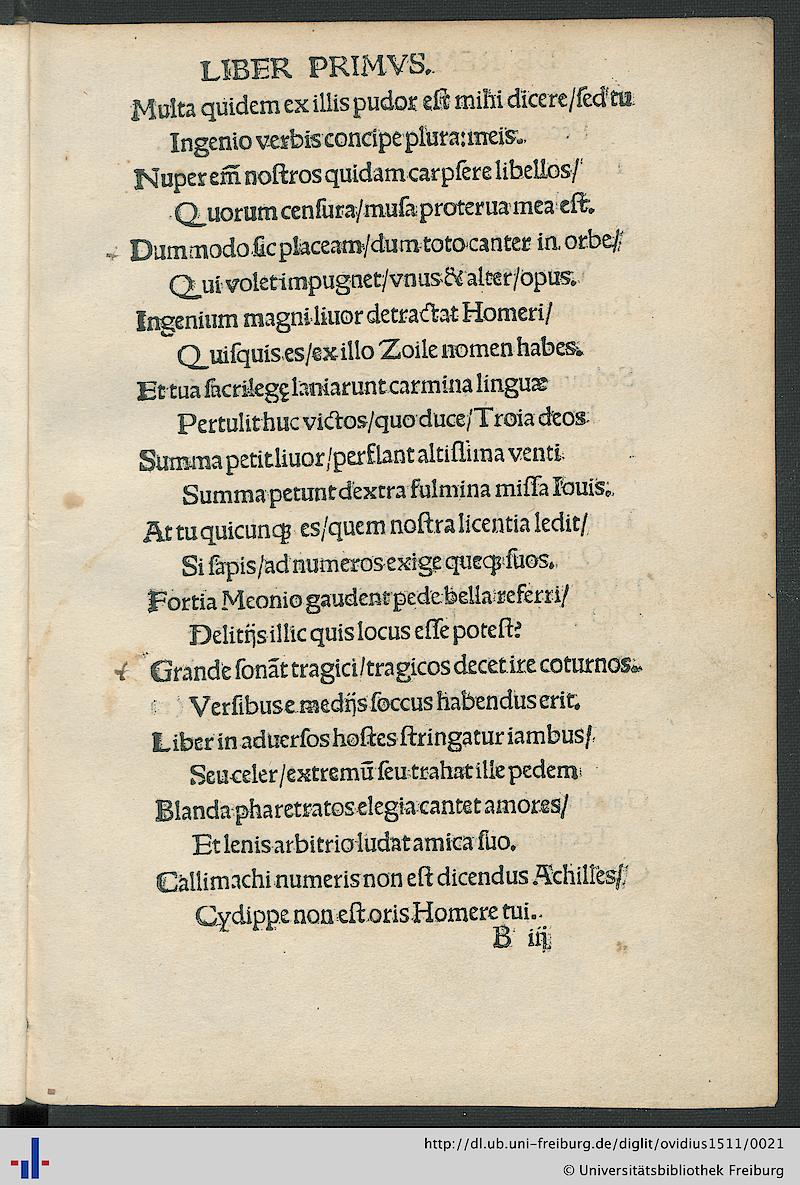 LIBER PRIMVS.
Multa quidem ex illis pudor est mihi dicere/sed tu
Ingenio verbis concipe plura: meis.
Nuper em̃ nostros quidam carpsere libellos/
Quorum censura/musa proterua mea est.
Dummodo sic placeam/dum toto canter in orbe/
Qui volet impugnet/vnus & alter/opus.
Ingenium magni liuor detractat Homeri/
Quisquis es/ex illo Zoile nomen habes.
Et tua sacrilegę laniarunt carmina linguæ
Pertulit huc victos/quo duce/Troia deos
Summa petit liuor/perflant altissima venti
Summa petunt dextra fulmina missa Iouis.
At tu quicunqꝫ es/quem nostra licentia ledit/
Si sapis/ad numeros exige queqꝫ suos.
Fortia Meonio gaudent pede bella referri/
Delitijs illic quis locus esse potest?
Grande sonãt tragici/tragicos decet ire coturnos.
Versibus e medijs soccus habendus erit.
Liber in aduersos hostes stringatur iambus/
Seu celer/extremũ seu trahat ille pedem
Blanda pharetratos elegia cantet amores/
Et lenis arbitrio ludat amica suo.
Callimachi numeris non est dicendus Achilles/
Cydippe non est oris Homere tui.
B iij
http://dl.ub.uni-freiburg.de/diglit/ovidius1511/0021
© Universitätsbibliothek Freiburg